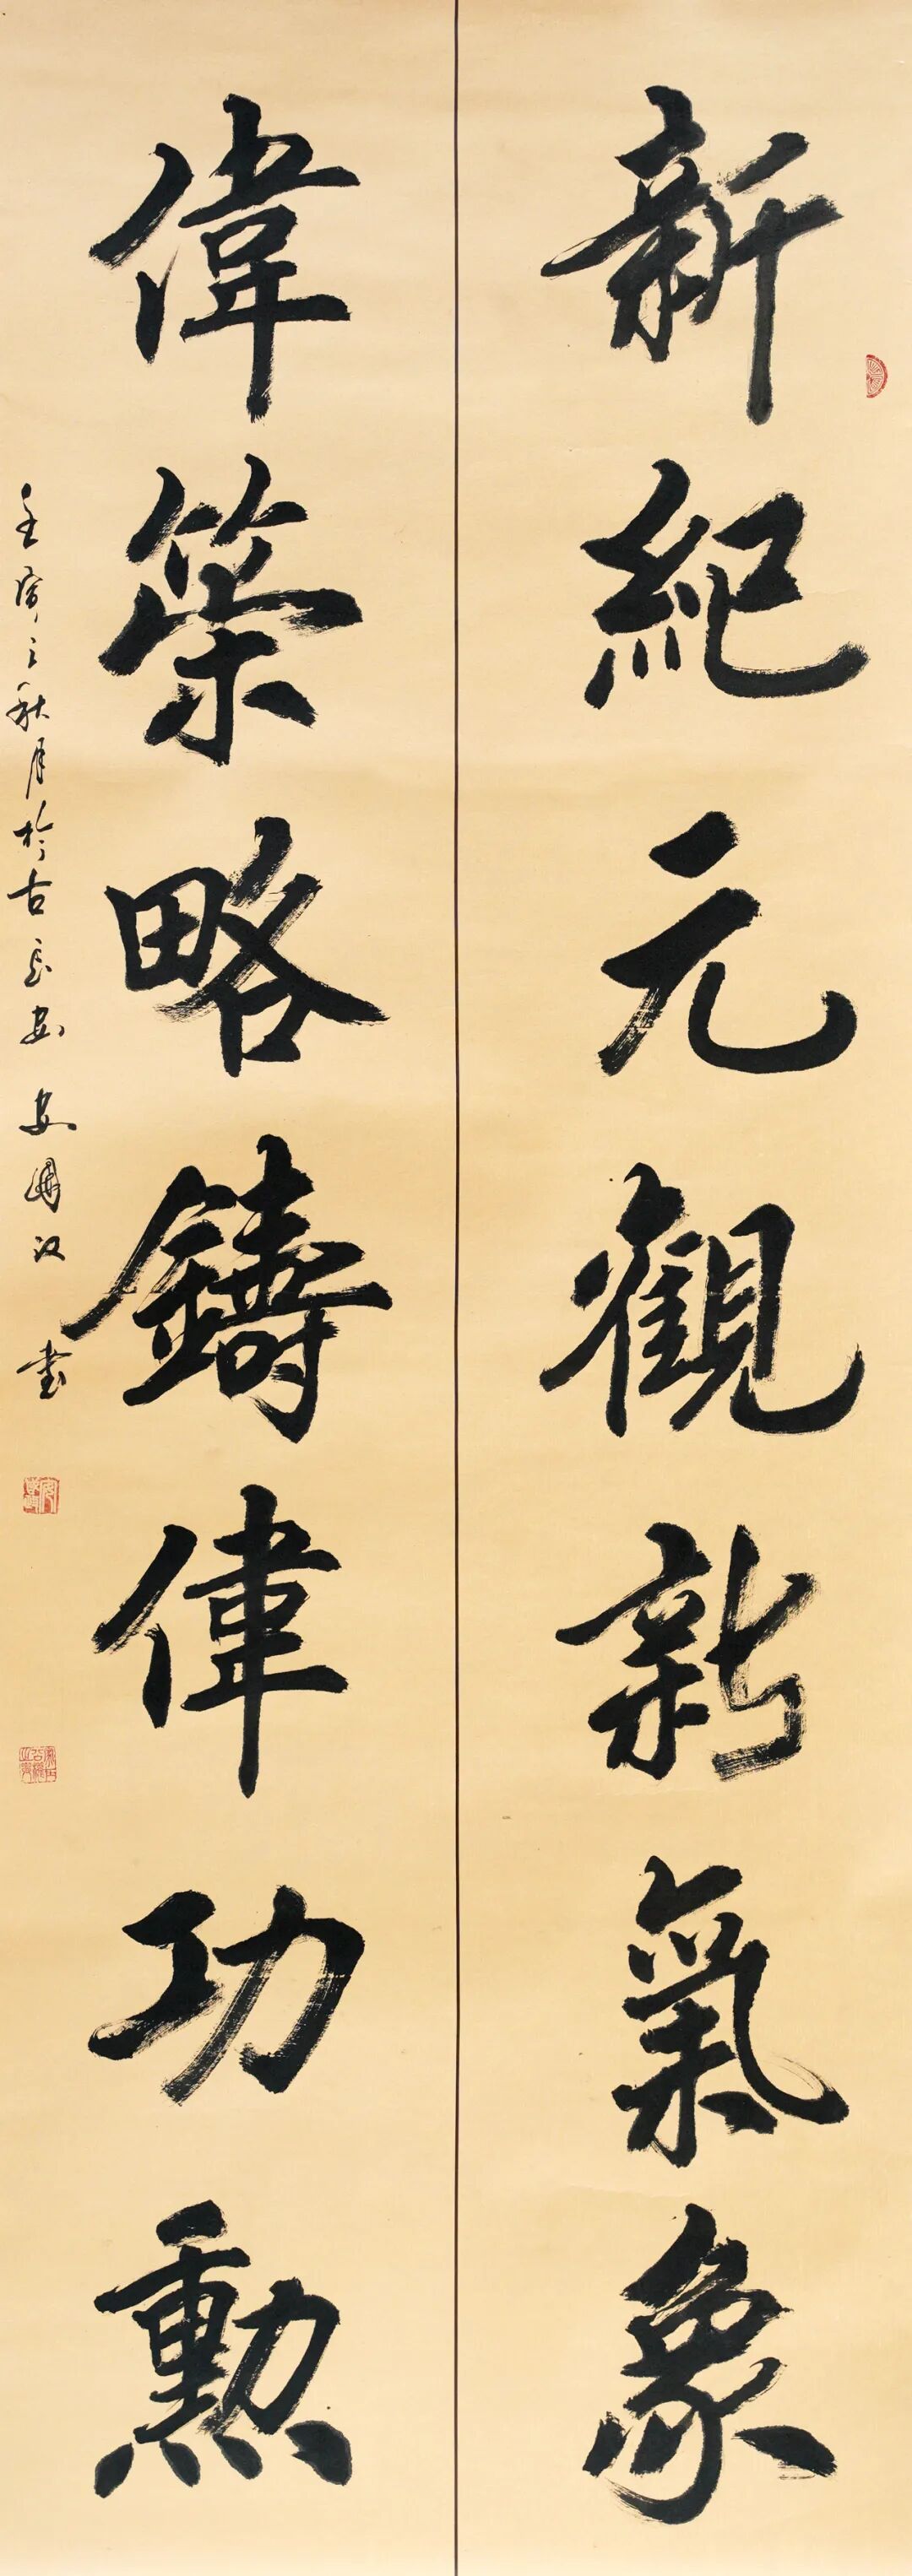 新紀元觀新氣象
偉策略鑄偉功勳
壬寅之秋月於古長安 安國政 书